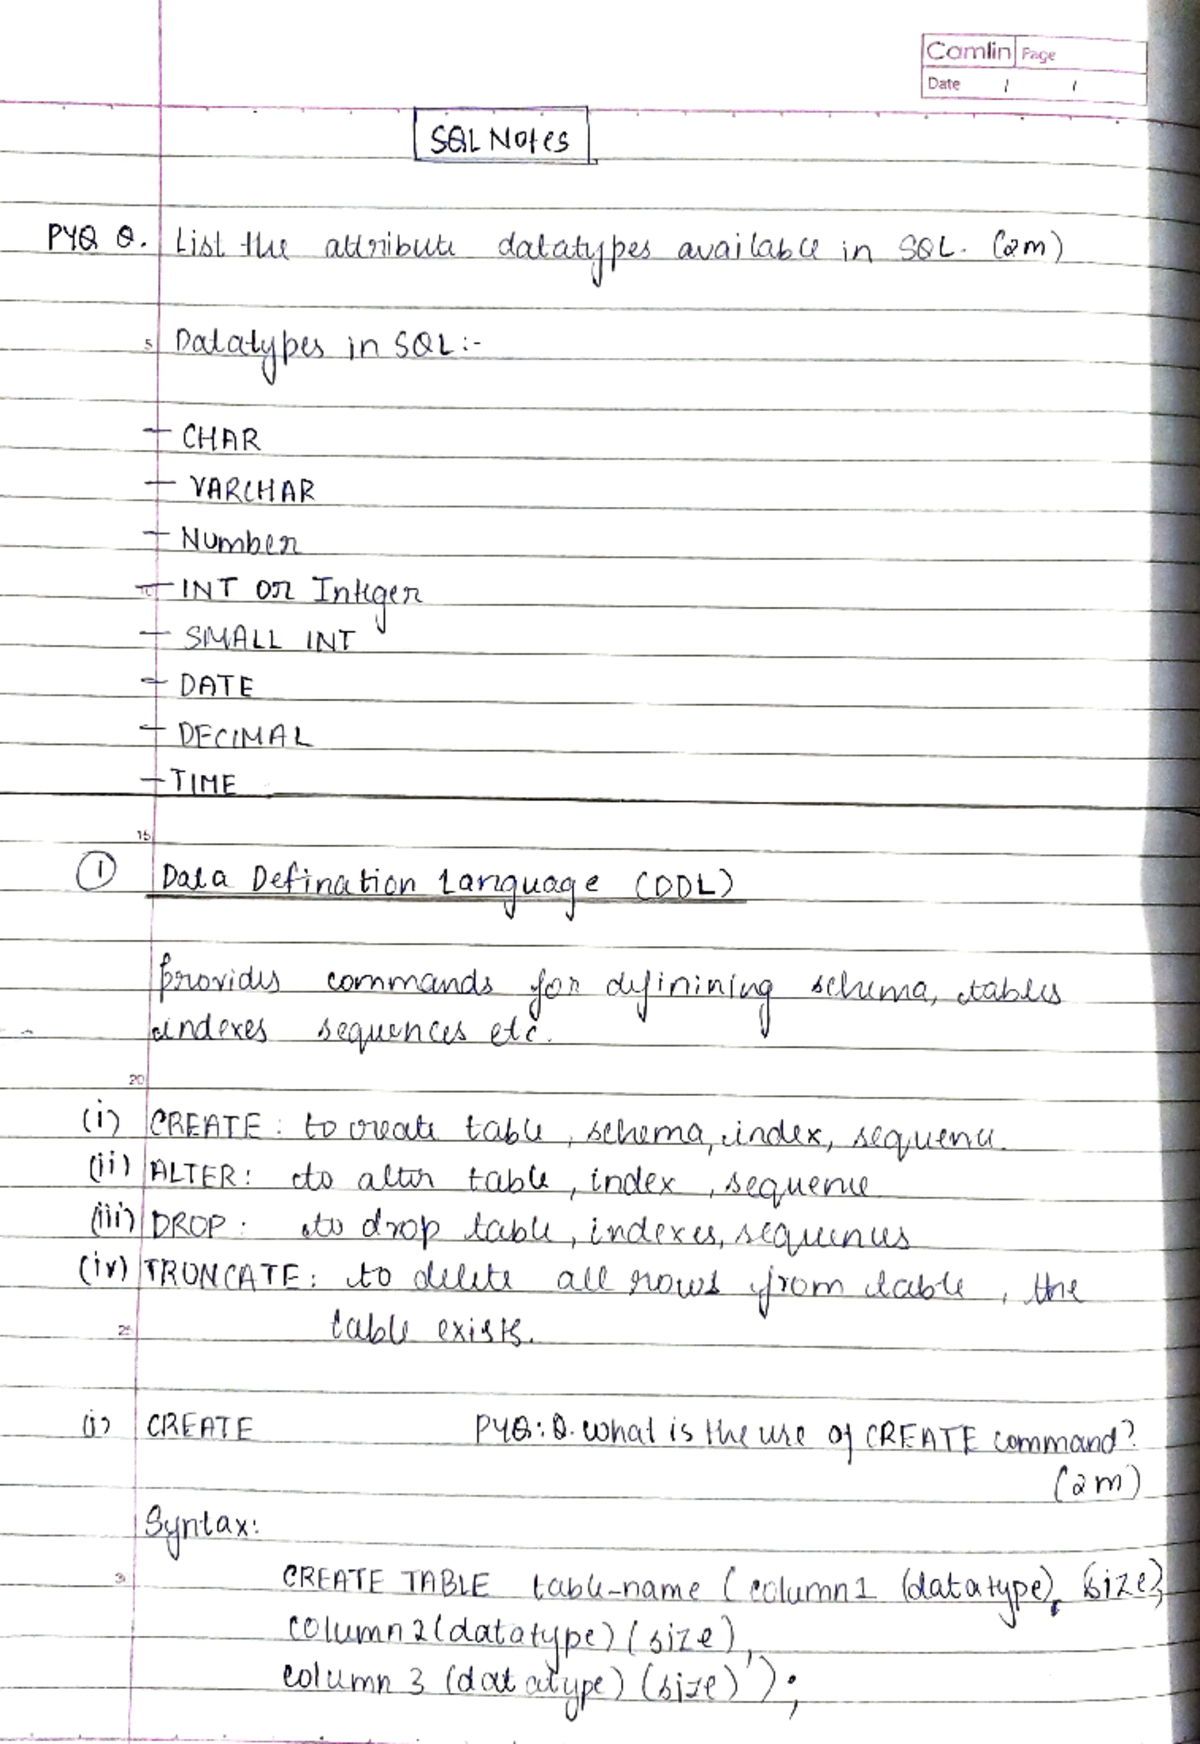 Camlin Page
Date / /
SQL Notes
PYQ Q. List the attribute datatypes available in SQL. (2m)
5 Datatypes in SQL:-
- CHAR
- VARCHAR
- Number
- INT or Integer
- SMALL INT
- DATE
- DECIMAL
- TIME
15
① Data Defination Language (DDL)
Provides commands for definining schema, tables
indexes sequences etc.
20
(i) CREATE: to create table, schema, index, sequence.
(ii) ALTER: to alter table, index, sequence
(iii) DROP: to drop table, indexes, sequences
(iv) TRUNCATE: to delete all rows from table, the
25 table exists.
(i) CREATE PYQ: Q. What is the use of CREATE command?
(2m)
Syntax:
CREATE TABLE table-name (column1 (datatype), (size),
column2(datatype)(size),
column 3 (datatype)(size));